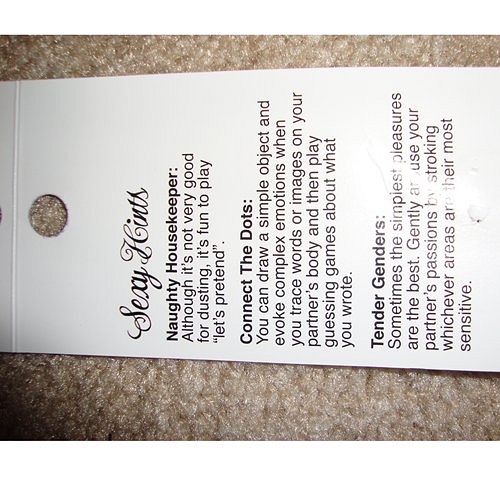 Sexy Hints
Naughty Housekeeper:
Although it's not very good
for dusting, it's fun to play
"let's pretend".
Connect The Dots:
You can draw a simple object and
evoke complex emotions when
you trace words or images on your
partner's body and then play
guessing games about what
you wrote.
Tender Genders:
Sometimes the simplest pleasures
are the best. Gently use your
partner's passions by stroking
whichever areas are their most
sensitive.